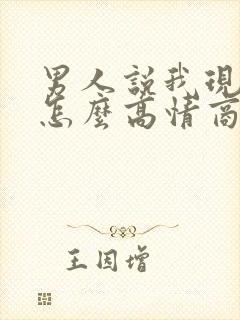 男人說我現
怎麼高情商
王因增